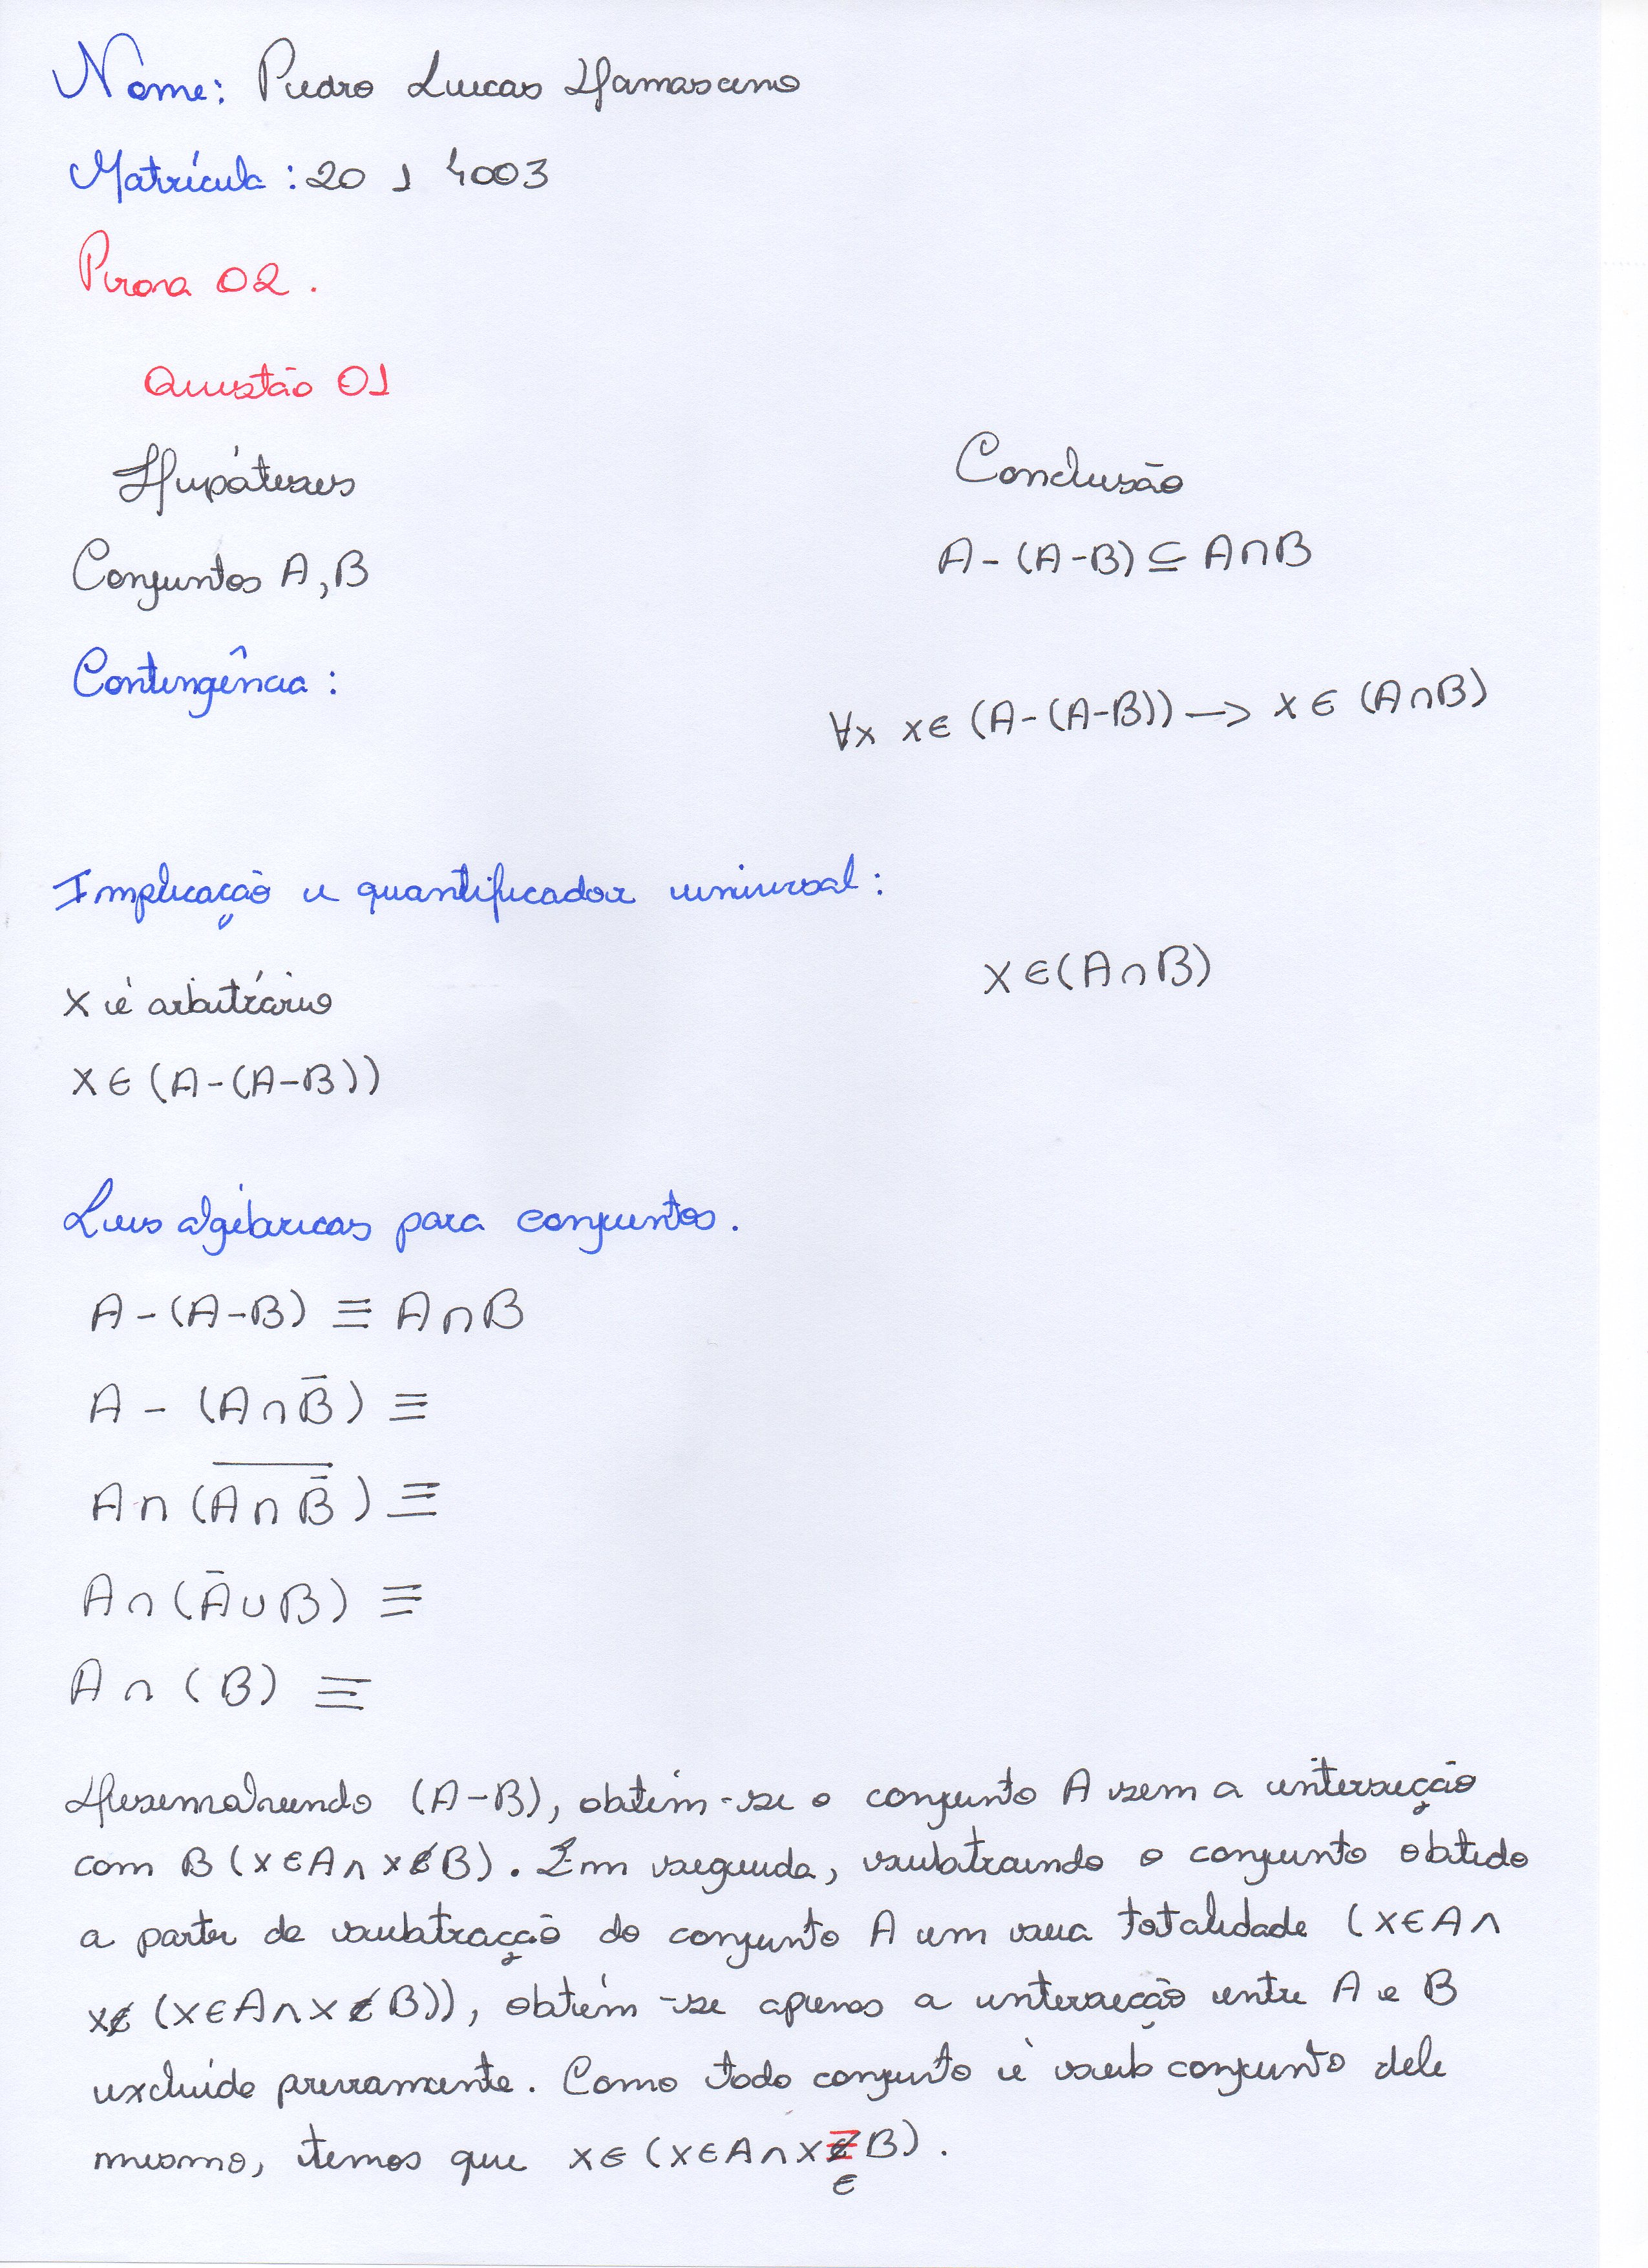 Nome: Pedro Lucas Damasceno
Matrícula: 20 1 4003
Prova 02.
Questão 01
Hipóteses
Conclusão
Conjuntos A, B
A - (A-B) ⊆ A∩B
Contingência:
∀x x∈ (A-(A-B)) → x∈ (A∩B)
Implicação e quantificador universal:
x é arbitrário
x ∈(A∩B)
x ∈ (A-(A-B))
Leis algébricas para conjuntos.
A-(A-B) ≡ A∩B
A - (A∩B̅) ≡
A∩(A̅ ̅∩̅ ̅B̅) ≡
A∩(A̅∪B) ≡
A∩(B) ≡
Desenvolvendo (A-B), obtém-se o conjunto A sem a interseção
com B (x∈A∧ x∉B). Em seguida, subtraindo o conjunto obtido
a partir da subtração do conjunto A em sua totalidade (x∈A∧
x∉ (x∈A∧x∉B)), obtém-se apenas a interseção entre A e B
excluída previamente. Como todo conjunto é sub conjunto dele
mesmo, temos que x∈ (x∈A∧x∈B).